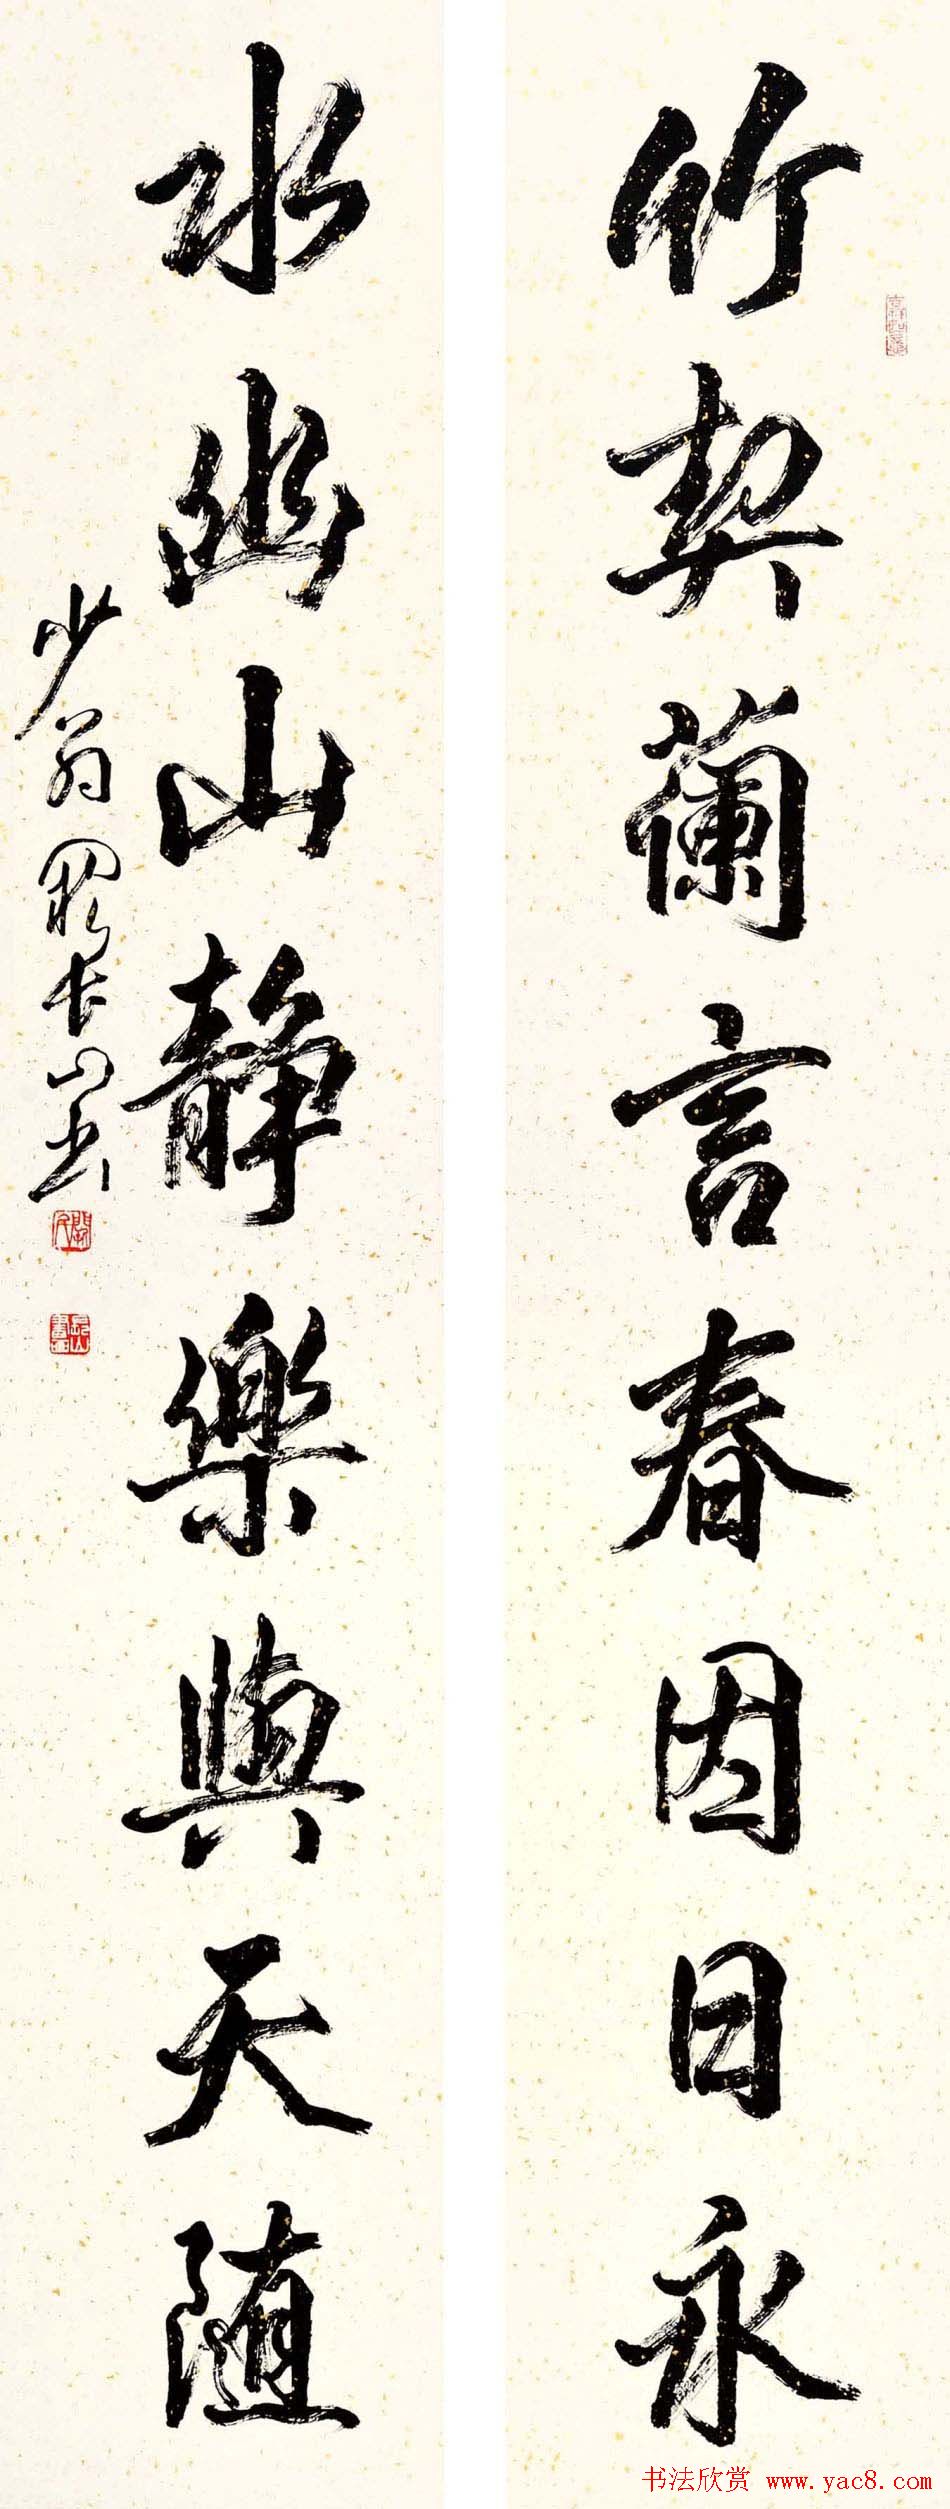 竹契蘭言春因日永
水幽山静樂與天随
少翁閻長山書
書法欣赏 www.yac8.com